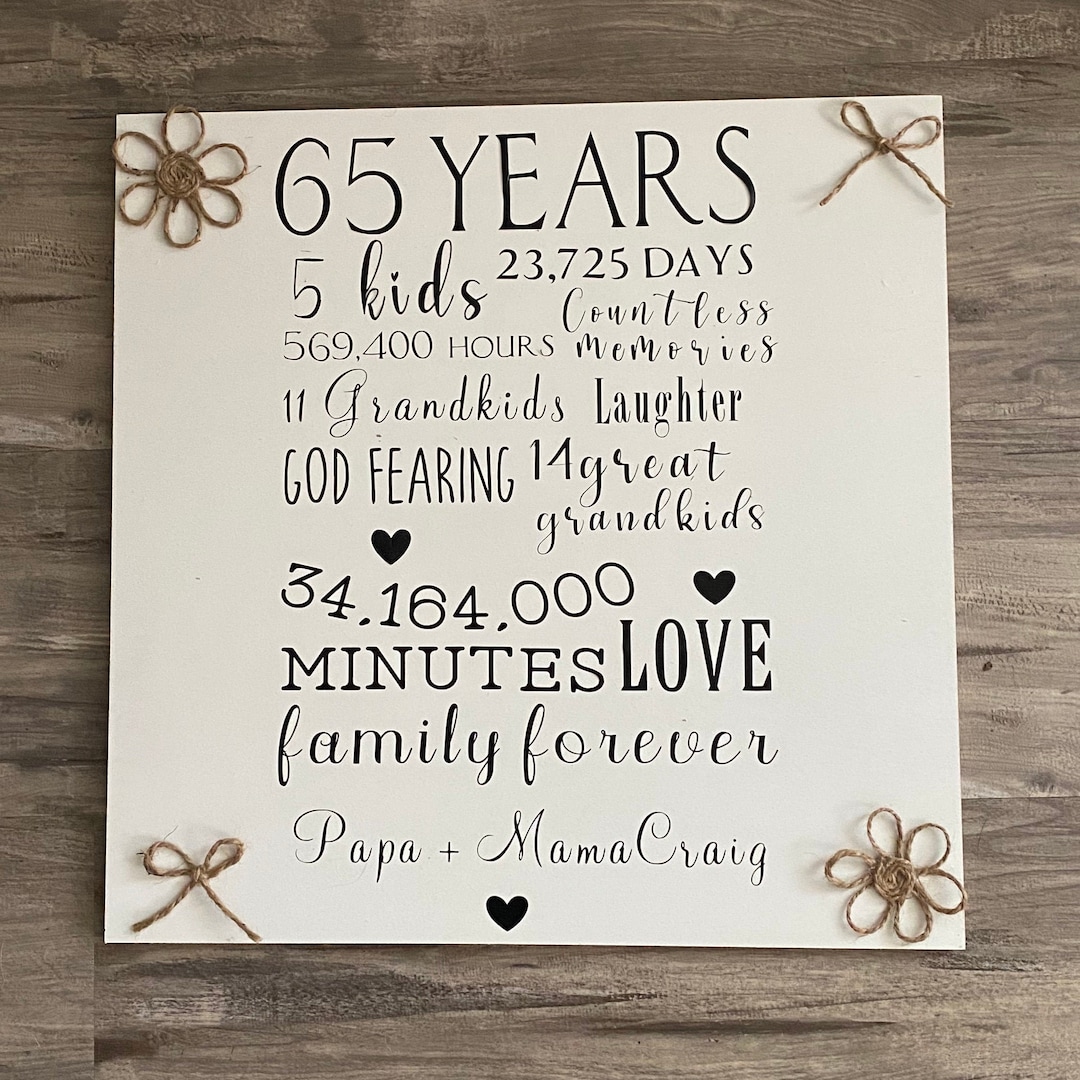 65 YEARS
5 kids 23,725 DAYS
Countless
569,400 HOURS memories
11 Grandkids Laughter
GOD FEARING 14 great
grandkids
34,164,000
MINUTES LOVE
family forever
Papa + MamaCraig